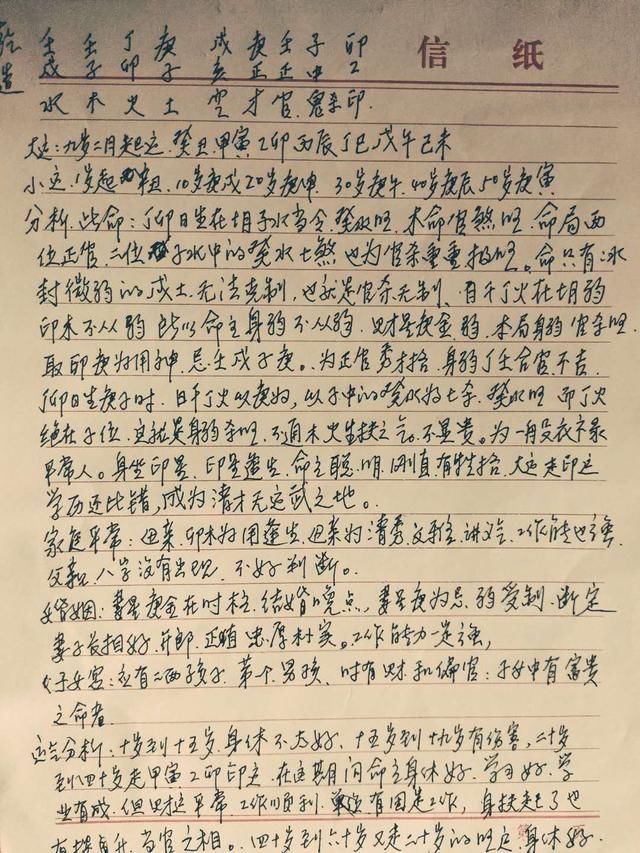 乾 壬 壬 丁 庚 戌 庚 壬 子 卯
造 戌 子 卯 子 亥 正 正 中 乙 信纸
水 木 火 土 空 才 官 鬼杀印
大运:九岁二月起运 癸丑 甲寅 乙卯 丙辰 丁巳 戊午 己未
小运 1岁起辛丑 10岁庚戌 20岁庚申 30岁庚午 40岁庚辰 50岁庚寅
分析 此命:丁卯日生在胡子水当令 癸水旺 木命官煞旺 命局两
位正官 二位子水中的癸水七煞也为官杀重重极旺。命只有冰
封微弱的戌土 无法克制,也就是官杀无制 日干丁火在胡弱
印未不从弱 所以命主身弱不从弱 财是庚金 弱 本局身弱官杀旺
取卯庚为用神 忌壬戌子庚。为正官秀才拾 身弱丁壬合官不吉
丁卯日生庚子时 日干丁火以庚为,以子中的癸水为七杀 癸水旺 而丁火
绝在子位 这就是身弱杀旺 不通木火生扶之气 不显贵。为一般衣禄
平常人。身坐印星 印星逢生 命主聪明 刚直有牲拾 大运走印运
学历还比错,成为清才无定武之地。
家庭平常:母亲 卯木为用逢生 母亲为清秀 父亲 讲义气 工作能也强
父亲 八字没有出现 不好判断。
婚姻:妻星庚金在时柱 结婚晚点,妻星庚为忌 弱受制 断定
妻子长相好 开郎 正直 忠厚朴实。工作能力一定强,
子女宫:应有二两孩子 第一个男孩 时有财和偏官:子女中有富贵
之命者
运气分析:十岁到十五岁 身体不太好 十五岁到十九岁有伤害,二十岁
到四十岁走甲寅乙卯印运 在这期间命主身体好 学习好 学
业有成 但财运平常 工作顺利 单位有固定工作,身扶起了也
有提升 当官之相。四十岁到六十岁又走二十岁的旺运 身体好